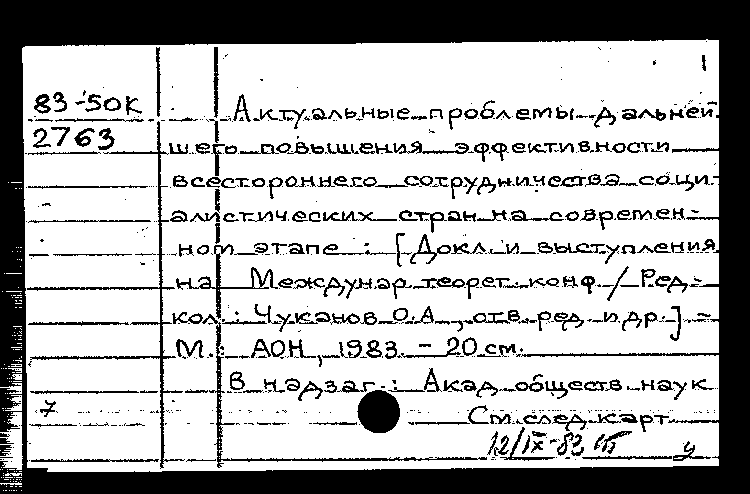 1
83-50К Актуальные проблемы дальней
2763 шего повышения эффективности
всестороннего сотрудничества соци-
алистических стран на современ-
ном этапе : [Докл. и выступления
на Междунар. теорет. конф. / Ред-
кол.: Чуканов О.А., отв. ред. и др.] -
М.: АОН, 1983. - 20 см.
В надзаг.: Акад. обществ. наук
7 См. след. карт.
12/IX-83